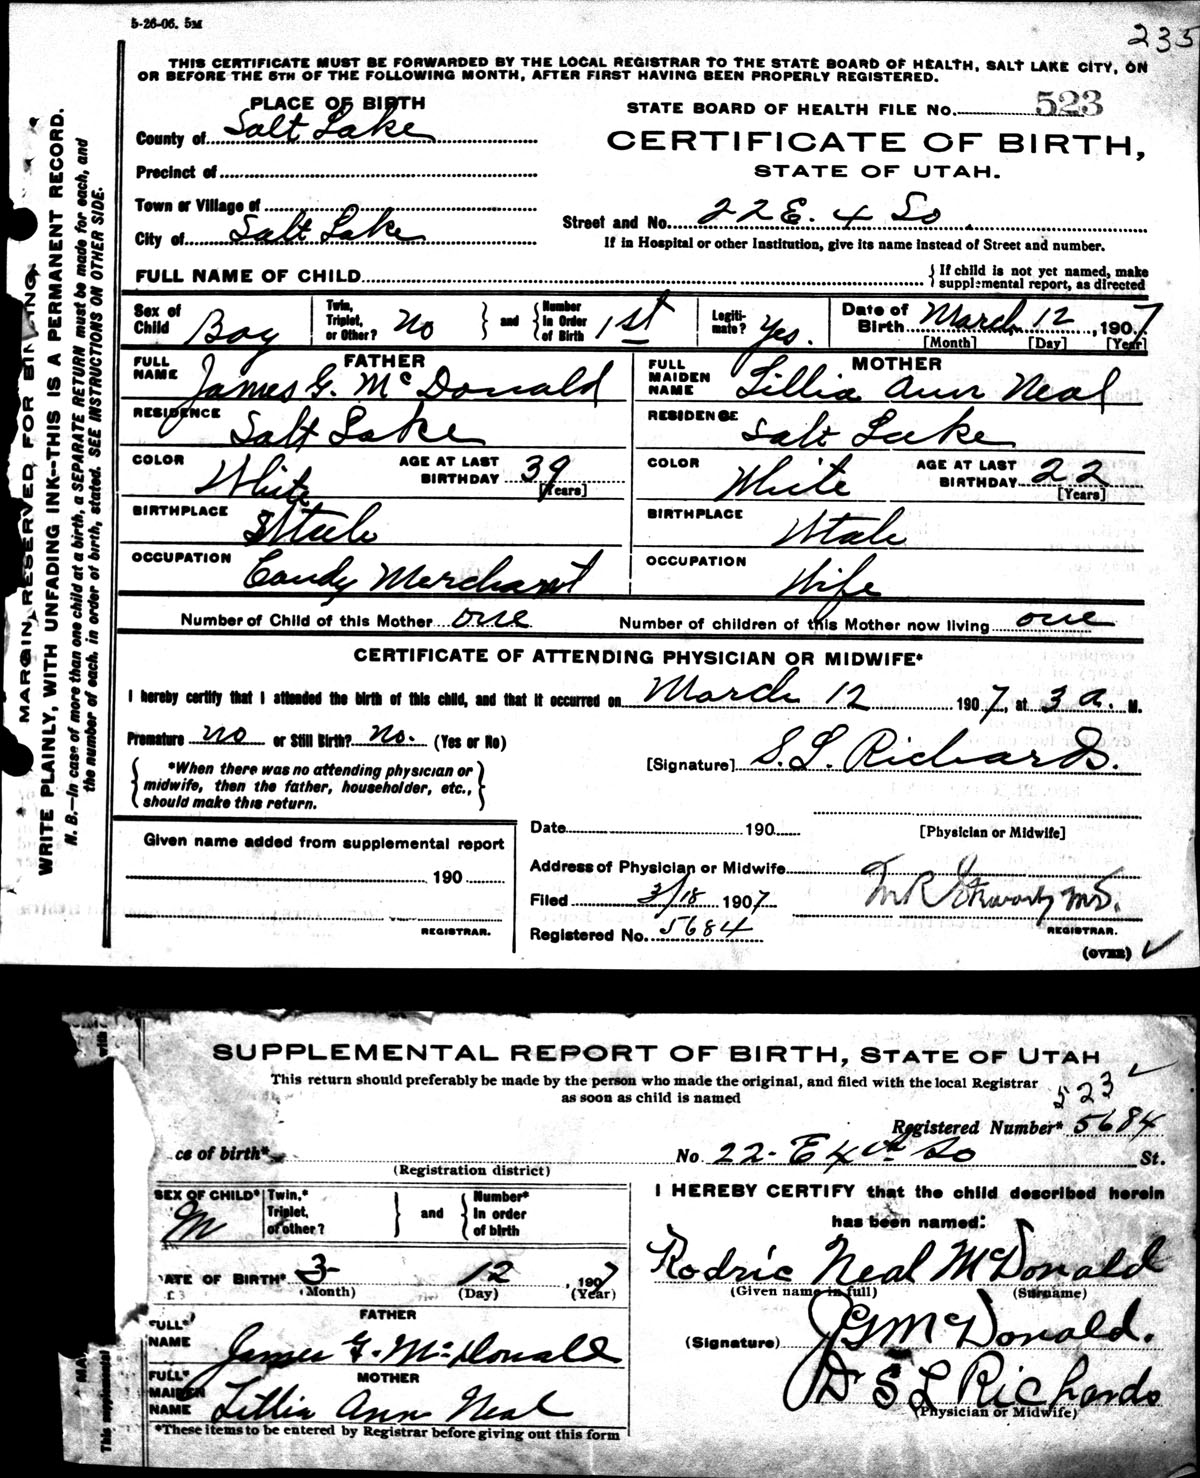 5-26-06. 5M
235
THIS CERTIFICATE MUST BE FORWARDED BY THE LOCAL REGISTRAR TO THE STATE BOARD OF HEALTH, SALT LAKE CITY, ON
OR BEFORE THE 5TH OF THE FOLLOWING MONTH, AFTER FIRST HAVING BEEN PROPERLY REGISTERED.
MARGIN RESERVED FOR BINDING
WRITE PLAINLY, WITH UNFADING INK--THIS IS A PERMANENT RECORD.
N. B.—In case of more than one child at a birth, a SEPARATE RETURN must be made for each, and
the number of each, in order of birth, stated. SEE INSTRUCTIONS ON OTHER SIDE.
PLACE OF BIRTH
County of Salt Lake
Precinct of
Town or Village of
City of Salt Lake
STATE BOARD OF HEALTH FILE No. 523
CERTIFICATE OF BIRTH,
STATE OF UTAH.
Street and No. 22 E. 4 So.
If in Hospital or other Institution, give its name instead of Street and number.
FULL NAME OF CHILD
If child is not yet named, make
supplemental report, as directed
Sex of Child Boy
Twin, Triplet, or Other? No
and Number In Order of Birth 1st
Legiti-mate? Yes.
Date of Birth March 12, 1907
[Month] [Day] [Year]
FATHER
FULL NAME James G. McDonald
RESIDENCE Salt Lake
COLOR White
AGE AT LAST BIRTHDAY 39
[Years]
BIRTHPLACE Utah
OCCUPATION Candy Merchant
MOTHER
FULL MAIDEN NAME Lillia Ann Neal
RESIDENCE Salt Lake
COLOR White
AGE AT LAST BIRTHDAY 22
[Years]
BIRTHPLACE Utah
OCCUPATION Wife
Number of Child of this Mother one
Number of children of this Mother now living one
CERTIFICATE OF ATTENDING PHYSICIAN OR MIDWIFE*
I hereby certify that I attended the birth of this child, and that it occurred on March 12 1907, at 3 a. M.
Premature no or Still Birth? No. (Yes or No)
*When there was no attending physician or
midwife, then the father, householder, etc.,
should make this return.
[Signature] S. L. Richards.
[Physician or Midwife]
Given name added from supplemental report
190
REGISTRAR.
Date 190
Address of Physician or Midwife
Filed 3/18 1907
Registered No. 5684
M.D.
REGISTRAR.
(OVER)
SUPPLEMENTAL REPORT OF BIRTH, STATE OF UTAH
This return should preferably be made by the person who made the original, and filed with the local Registrar
as soon as child is named
523
Registered Number* 5684
ce of birth*
(Registration district)
No 22 - E 4th So St.
SEX OF CHILD* M
Twin,* Triplet, or other?
and Number* In order of birth
ATE OF BIRTH* 3- 12, 1907
(Month) (Day) (Year)
FATHER
FULL* NAME James G. McDonald
MOTHER
FULL* MAIDEN NAME Lillia Ann Neal
*These items to be entered by Registrar before giving out this form
I HEREBY CERTIFY that the child described herein
has been named:
Rodric Neal McDonald
(Given name in full) (Surname)
(Signature) JG McDonald.
Dr S L Richards
(Physician or Midwife)
This supplemental
with